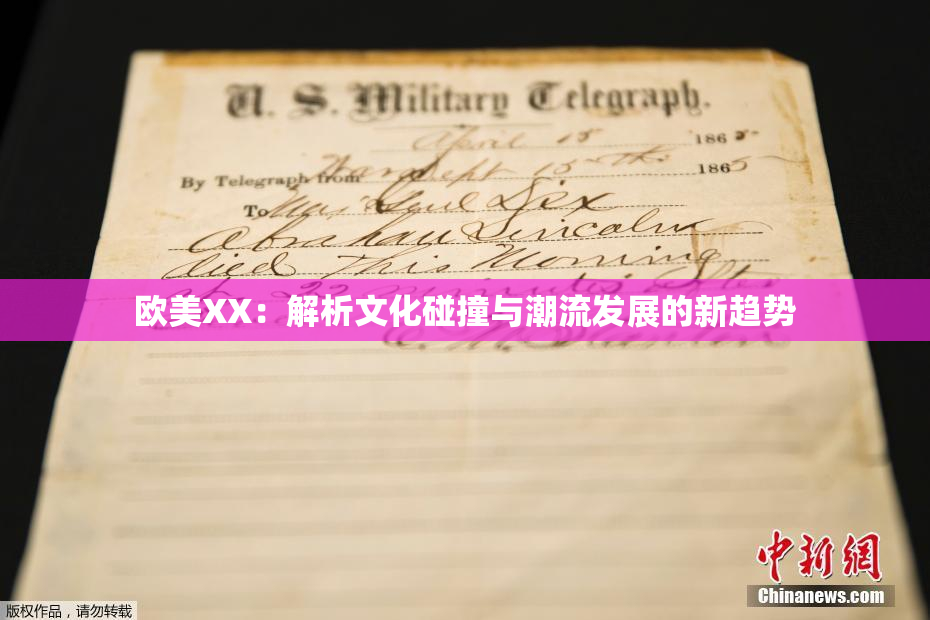 U. S. Military Telegraph.
April 15 1865
By Telegraph from War Dept 15th 1865
To Maj Genl Dix
Abraham Lincoln
died This Morning
at 22 minutes after
欧美XX：解析文化碰撞与潮流发展的新趋势
中新网
Chinanews.com
版权作品，请勿转载